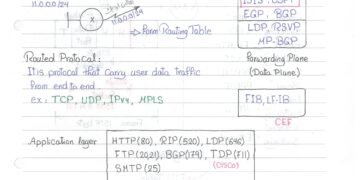 11.0.0.0/24
11.0.0.0/24
X
ISIS, OSPF
EGP, BGP
⇒ Form Routing Table
LDP, RSVP,
MP-BGP
Routed Protocal:
Forwarding Plane
(Data Plane)
It is protocal that carry user data traffic
from end to end
ex: TCP, UDP, IPv4, MPLS
FIB, LFIB
CEF
Application layer
HTTP(80), RIP(520), LDP(646)
FTP(20,21), BGP(179), TDP(711)
(CISCO)
SMTP(25)